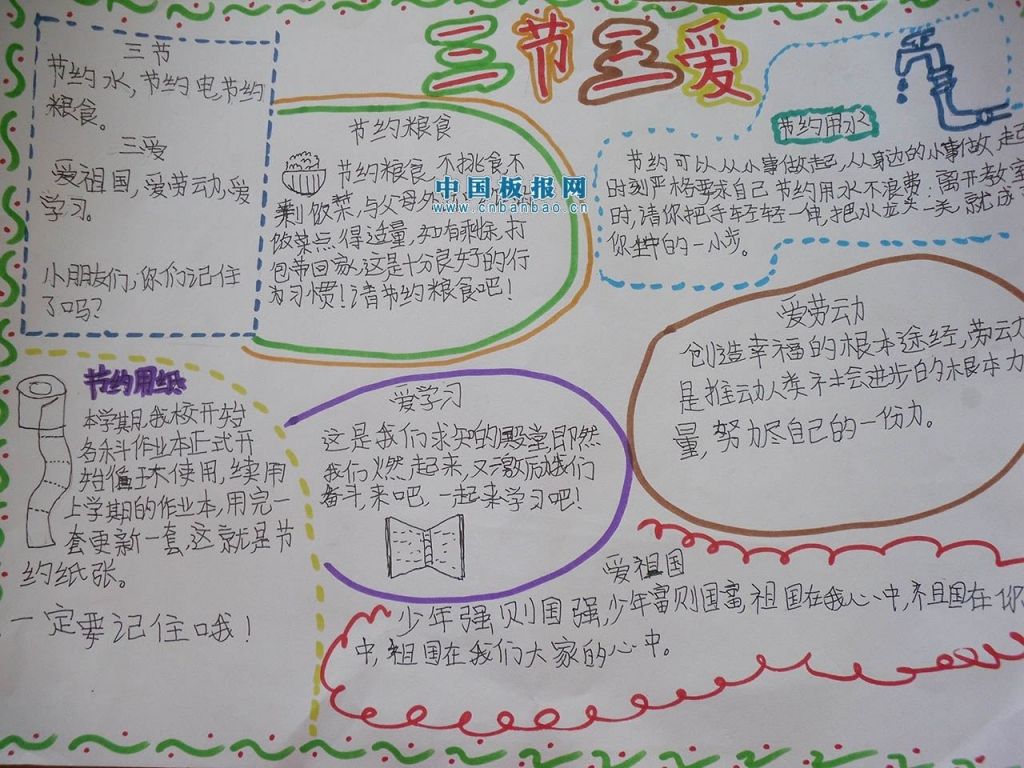 三节三爱
三节
节约水,节约电,节约
粮食。
三爱
爱祖国,爱劳动,爱
学习。
小朋友们,你们记住
了吗?
节约粮食
节约粮食,不挑食,不
剩饭菜,与父母外
饭菜点得适量,如有剩余,打
包带回家,这是十分良好的行
为习惯!请节约粮食吧!
中国板报网
www.cnbanbao.cn
节约用水
节约可以从小事做起,从身边的小事做起
时刻严格要求自己节约用水不浪费.离开教室
时,请你把手轻轻一伸,把水龙头一关,就成了
你 中的一小步。
爱劳动
创造幸福的根本途经,劳动
是推动人类社会进步的根本力
量,努力尽自己的一份力。
节约用纸
本学期,我校开始
各科作业本正式开
始循环使用,续用
上学期的作业本,用完一
套更新一套,这就是节
约纸张。
一定要记住哦!
爱学习
这是我们求知的殿堂,即然
我们燃起来,又激励我们
奋斗来吧,一起来学习吧!
爱祖国
少年强则国强,少年富则国富,祖国在我心中,祖国在你
中,祖国在我们大家的心中。